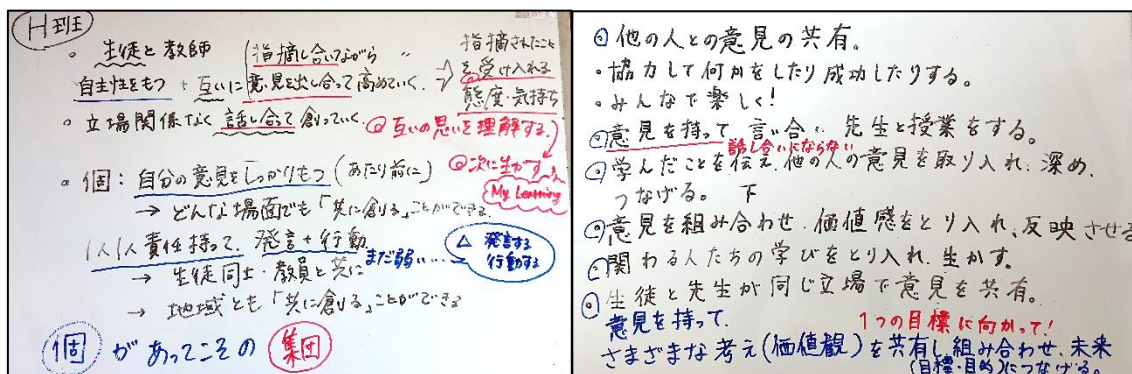 H班
・生徒と教師
指摘し合いながら
自主性をもつ + 互いに 意見を出し合って高めていく。
指摘されたこと
を受け入れる
態度・気持ち
・立場関係なく 話し合って創っていく。
互いの思いを理解する。
次に生かす
My Learning
・個:自分の意見をしっかりもつ(あたり前に)
→ どんな場面でも「共に創る」ことができる。
1人1人責任持って、発言+行動
まだ弱い……
△ 発言する
行動する
→ 生徒同士・教員と共に
→ 地域とも「共に創る」ことができる
個 があってこその 集団
他の人との意見の共有。
・協力して何かをしたり成功したりする。
・みんなで楽しく!
意見を持って 言い合い 先生と授業をする。
話し合いにならない
学んだことを伝え、他の人の意見を取り入れ、深め、
つなげる。 下
意見を組み合わせ、価値感をとり入れ、反映させる
関わる人たちの学びをとり入れ、生かす。
生徒と先生が同じ立場で意見を共有。
意見を持って、
1つの目標に向かって!
さまざまな考え(価値観)を共有し組み合わせ、未来
(目標・目的)につなげる。